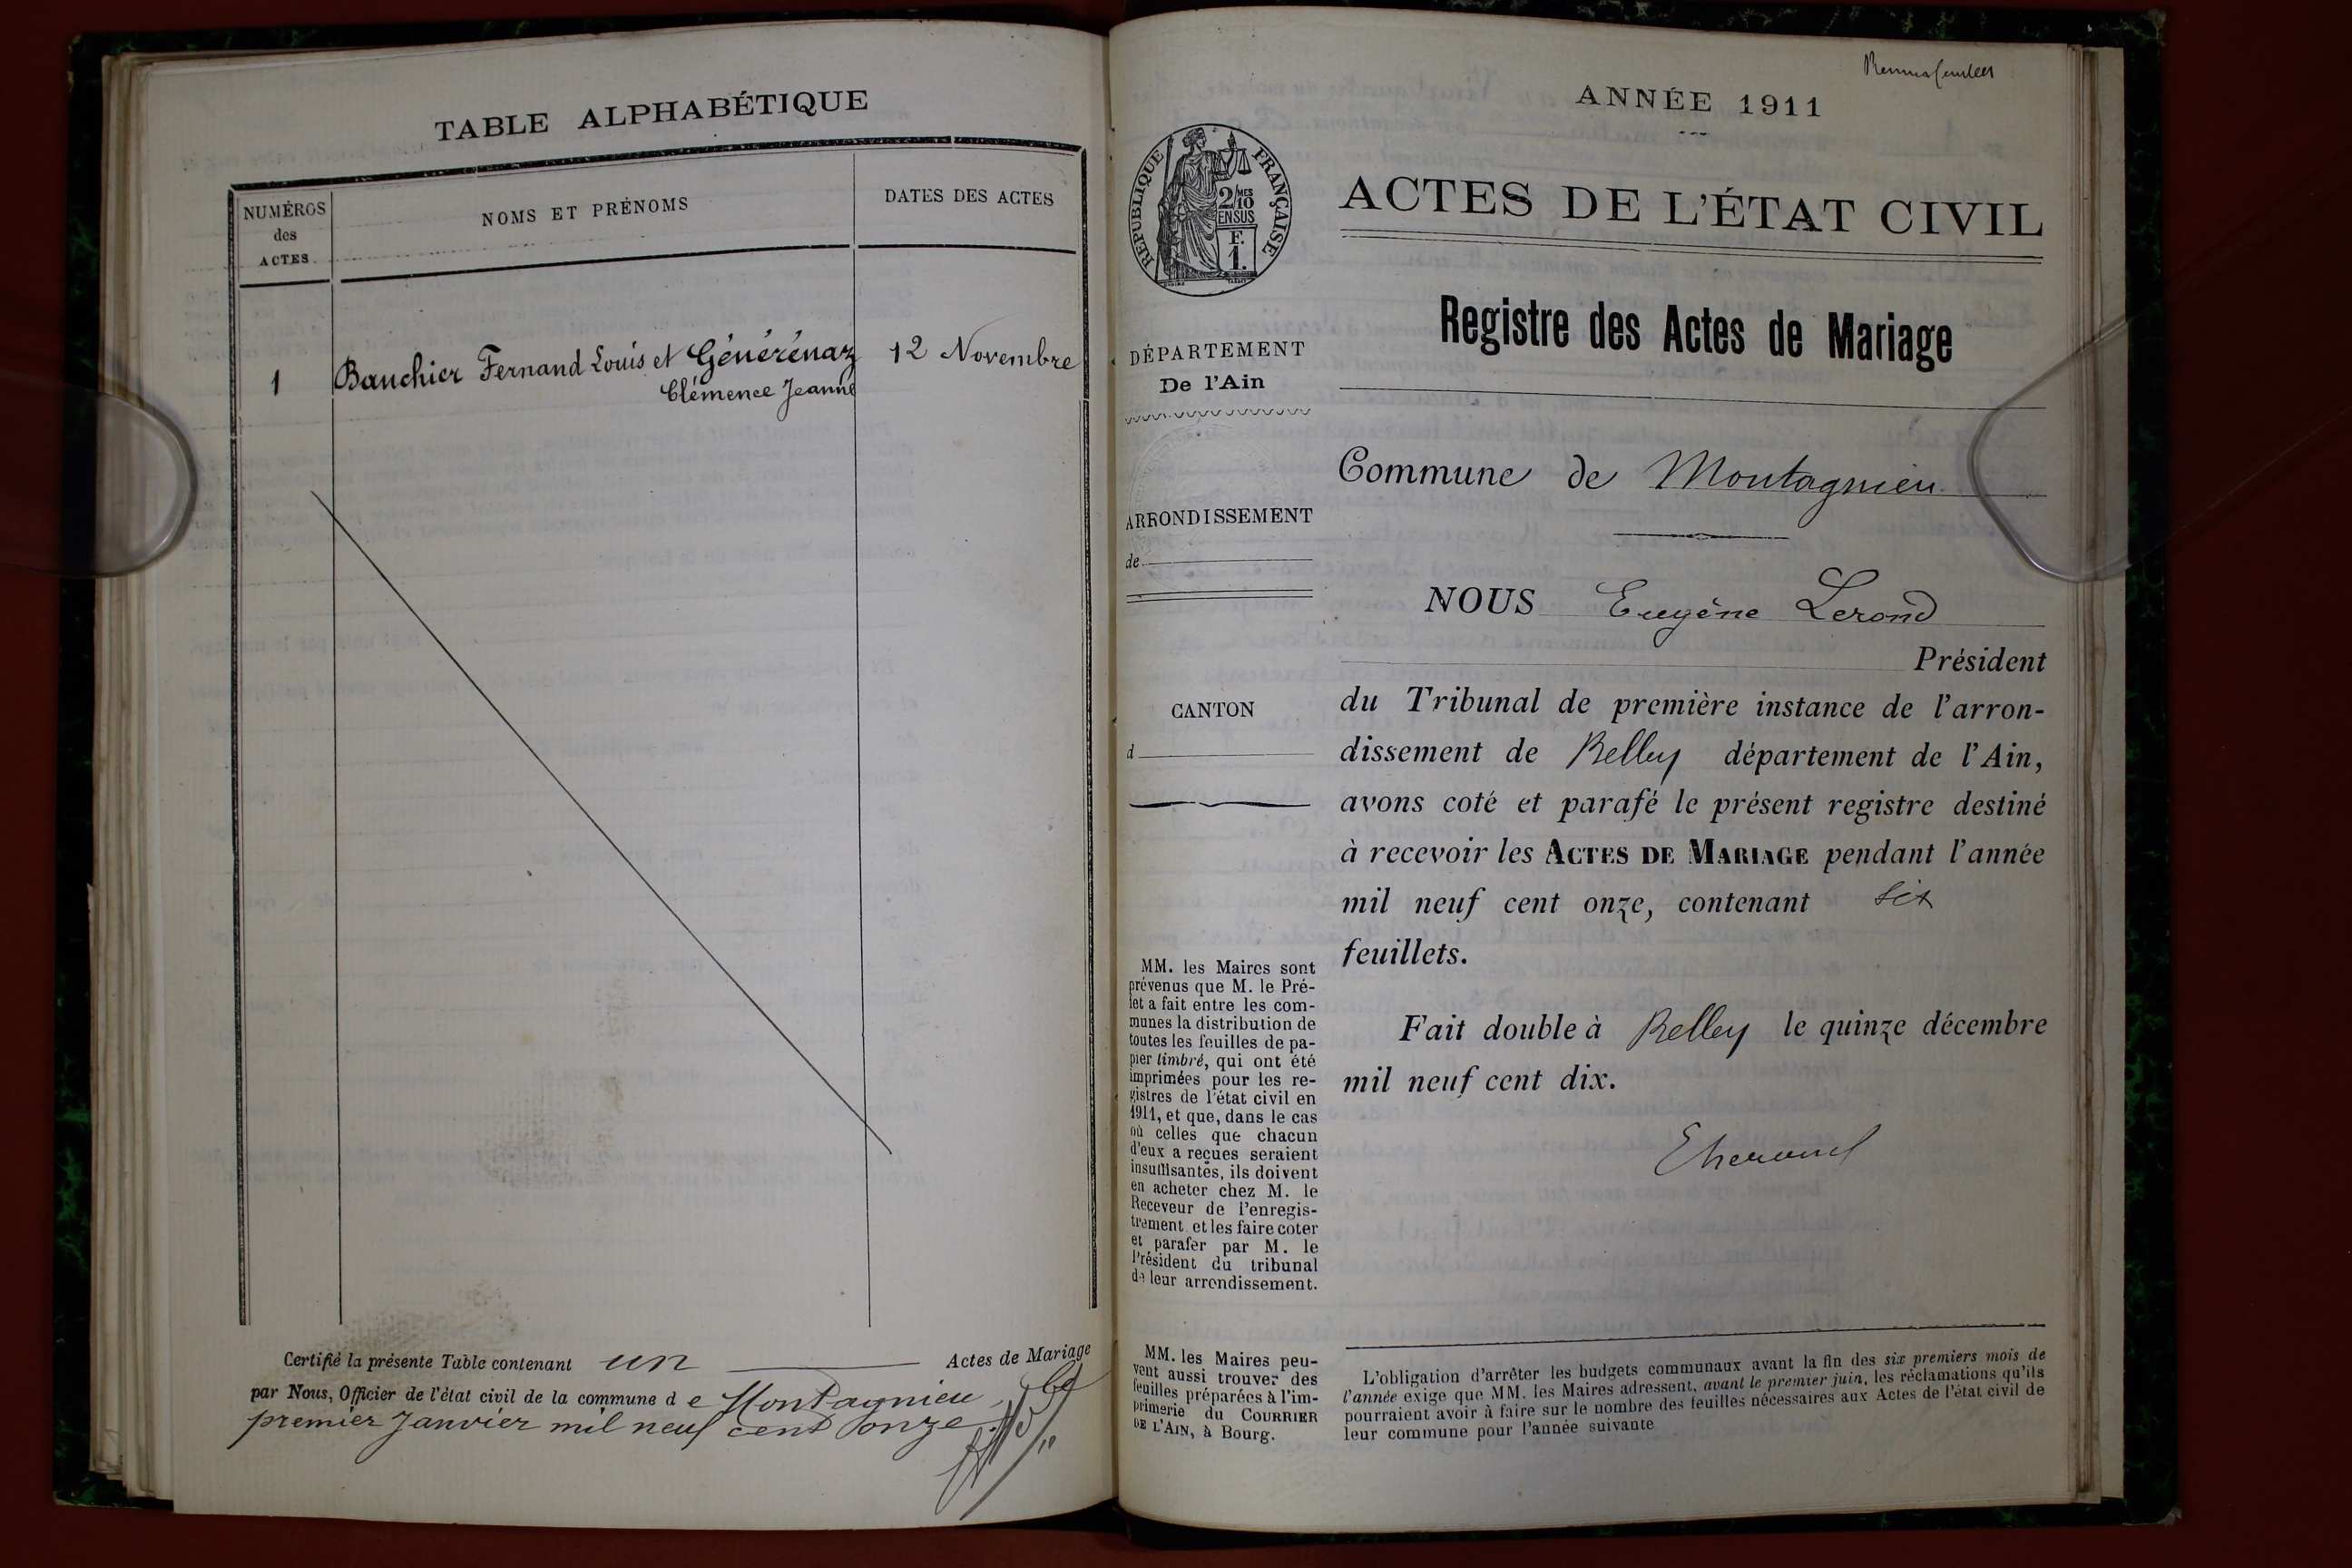 TABLE ALPHABÉTIQUE
NUMÉROS
des
ACTES
NOMS ET PRÉNOMS
DATES DES ACTES
1
Bauchier Fernand Louis et Générénaz
Clémence Jeanne
12 Novembre
Certifié la présente Table contenant un Actes de Mariage
par Nous, Officier de l'état civil de la commune d e Montagnieu
premier Janvier mil neuf cent onze
ANNÉE 1911
RÉPUBLIQUE FRANÇAISE
2/10 MES
EN SUS
F.
1.
ACTES DE L'ÉTAT CIVIL
Registre des Actes de Mariage
DÉPARTEMENT
De l'Ain
ARRONDISSEMENT
de
CANTON
d
MM. les Maires sont
prévenus que M. le Pré-
fet a fait entre les com-
munes la distribution de
toutes les feuilles de pa-
pier timbré, qui ont été
imprimées pour les re-
gistres de l'état civil en
1911, et que, dans le cas
où celles que chacun
d'eux a reçues seraient
insuffisantes, ils doivent
en acheter chez M. le
Receveur de l'enregis-
trement et les faire coter
et parafer par M. le
Président du tribunal
de leur arrondissement.
MM. les Maires peu-
vent aussi trouver des
feuilles préparées à l'im-
primerie du COURRIER
DE L'AIN, à Bourg.
Commune de Montagnieu
NOUS Eugène Lerond
Président
du Tribunal de première instance de l'arron-
dissement de Belley département de l'Ain,
avons coté et parafé le présent registre destiné
à recevoir les ACTES DE MARIAGE pendant l'année
mil neuf cent onze, contenant six
feuillets.
Fait double à Belley le quinze décembre
mil neuf cent dix.
L'obligation d'arrêter les budgets communaux avant la fin des six premiers mois de
l'année exige que MM. les Maires adressent, avant le premier juin, les réclamations qu'ils
pourraient avoir à faire sur le nombre des feuilles nécessaires aux Actes de l'état civil de
leur commune pour l'année suivante